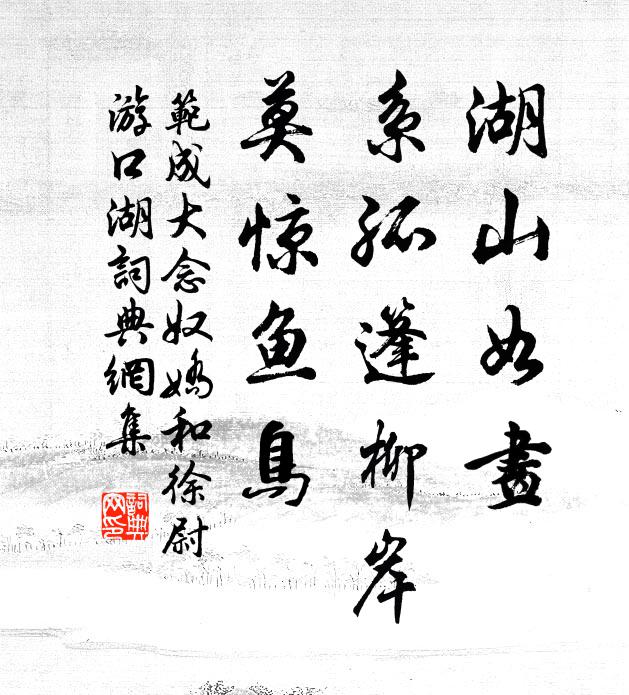 湖山如畫
系孤篷柳岸
莫惊鱼鳥
範成大念奴嬌和徐尉
游口湖詞典網集
詞典网印